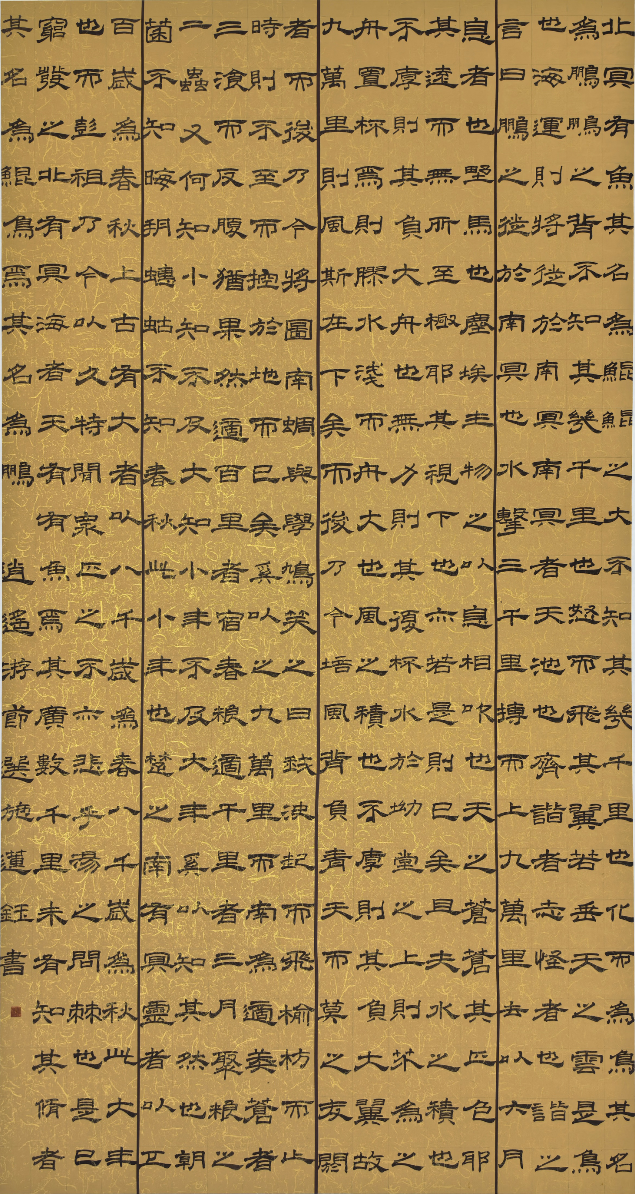 北冥有魚其名為鯤鯤之大不知其幾千里也化而為鳥其名
為鵬鵬之背不知其幾千里也怒而飛其翼若垂天之雲是鳥
也海運則將徙於南冥南冥者天池也齊諧者志怪者也諧之
言曰鵬之徙於南冥也水擊三千里摶而上九萬里去以六月
息者也埜馬也塵埃生物之以息相吹也天之蒼蒼其正色耶
其遠而無所至極耶其視下也亦若是則已矣且夫水之積也
不厚則其負大舟也無力則其覆杯水於坳堂之上則芥為之
舟置杯焉則膠水淺而舟大也風之積也不厚則其負大翼故
九萬里則風斯在下矣而後乃今培風背負青天而莫之夭閼
者而後乃今將圖南蜩與學鳩笑之曰我決起而飛榆枋而止
時則不至而控於地而已矣奚以之九萬里而南為適莽蒼者
三飡而反腹猶果然適百里者宿舂糧適千里者三月聚糧之
二蟲又何知小知不及大知小年不及大年奚以知其然也朝
菌不知晦朔蟪蛄不知春秋此小年也楚之南有冥靈者以五
百歲為春秋上古有大者以八千歲為春八千歲為秋此大年
也而彭祖乃今以久特聞衆匹之不亦悲乎湯之問棘也是已
窮發之北有冥海者天有有魚焉其廣數千里未有知其脩者
其名為鯤鳥焉其名為鵬 逍遙游節選施蓮鈺書